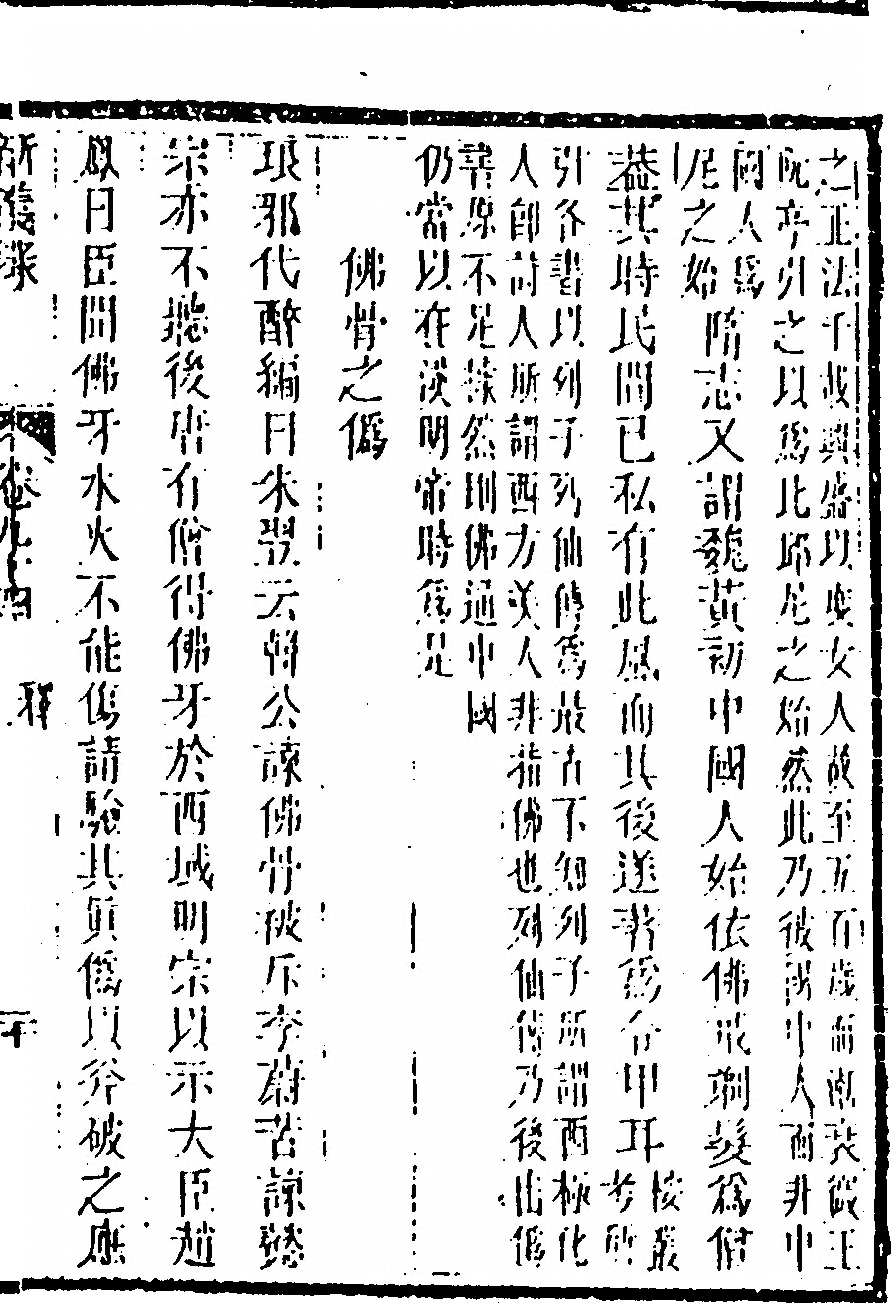 之正法千歲興盛以度女人故至五百歲而漸衰微王
阮亭引之以爲比邱尼之始然此乃彼國中人而非中
國人爲
尼之始隋志又謂魏黃初中國人始依佛戒剃髮爲僧
蓋其時民間已私有此風而其後遂著爲令甲耳按叢
考所
引各書以列子列仙傳爲最古不知列子所謂西極化
人卽詩人所謂西方美人非指佛也列仙傳乃後出僞
書原不足據然則佛通中國
仍當以在漢明帝時爲是
佛骨之僞
琅邪代醉編曰朱翌云韓公諫佛骨被斥李蔚苦諫懿
宗亦不聽後唐有僧得佛牙於西域明宗以示大臣趙
鳳曰臣聞佛牙水火不能傷請驗其眞僞以斧破之應
釋